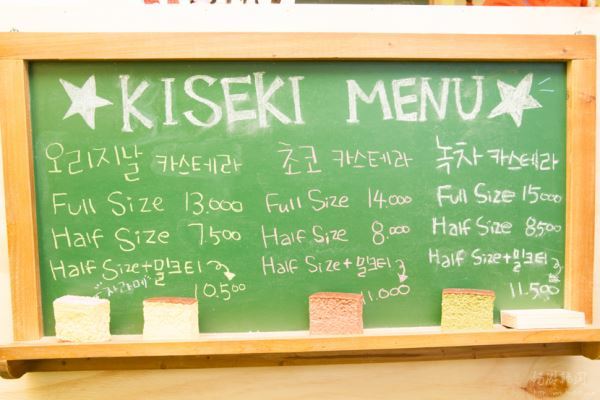 KISEKI MENU
오리지날 카스테라
Full Size 13.000
Half Size 7.500
Half Size+밀크티
10.500
초코 카스테라
Full Size 14.000
Half Size 8.000
Half Size+밀크티
11.000
녹차 카스테라
Full Size 15000
Half Size 8,500
Half Size+밀크티
11.500